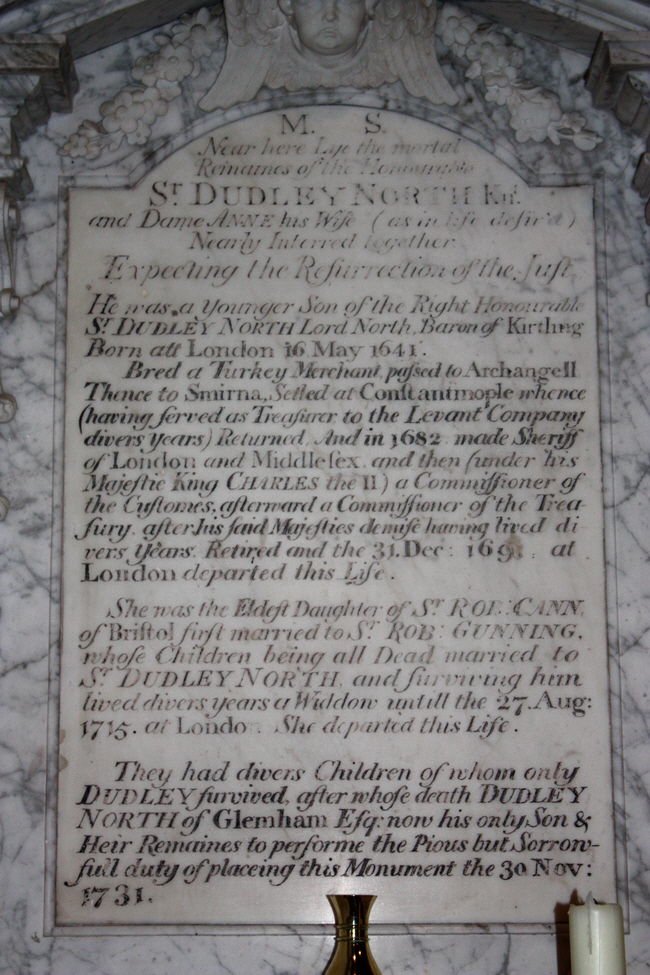 M. S.
Near here Lye the mortal
Remaines of the Honourable
Sr. DUDLEY NORTH Knt.
and Dame ANNE his Wife (as in life desir'd)
Nearly Interred together.
Expecting the Reſurrection of the Juſt,
He was a younger Son of the Right Honourable
Sr. DUDLEY NORTH Lord North, Baron of Kirtling
Born att London 16 May 1641.
Bred a Turkey Merchant, paſsed to Archangell
Thence to Smirna, Setled at Conſtantinople whence
(having ſerved as Treaſurer to the Levant Company
divers years) Returned, And in 1682 made Sheriff
of London and Middleſex, and then (under his
Majeſtie King CHARLES the II) a Commiſſioner of
the Cuſtomes, afterward a Commiſſioner of the Trea-
ſury, after his ſaid Majeſties demiſe having lived di
vers Years. Retired and the 31. Dec: 1691. at
London departed this Life.
She was the Eldeſt Daughter of Sr. ROB: CANN,
of Briſtol firſt married to Sr. ROB: GUNNING,
whoſe Children being all Dead married to
Sr. DUDLEY NORTH, and ſurviving him
lived divers years a Widdow untill the 27. Aug:
1715. at London. She departed this Life.
They had divers Children of whom only
DUDLEY ſurvived, after whoſe death DUDLEY
NORTH of Glemham Eſq; now his only Son &
Heir Remaines to performe the Pious but Sorrow-
full duty of placeing this Monument the 30 Nov:
1731.